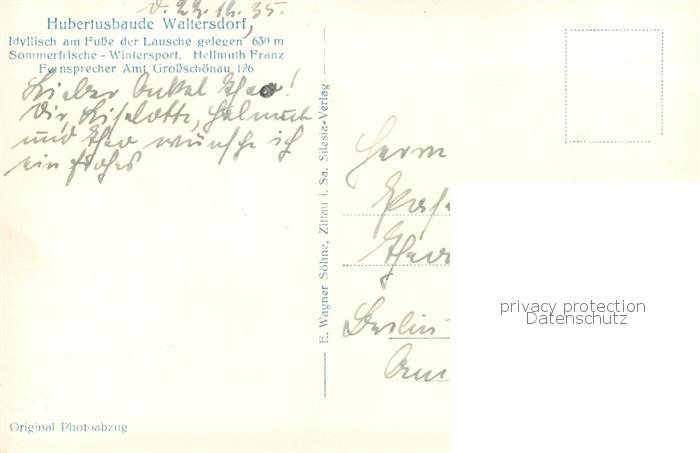 d. 23.12.35.
Hubertusbaude Waltersdorf,
Idyllisch am Fuße der Lausche gelegen 630 m
Sommerfrische - Wintersport. Hellmuth Franz
Fernsprecher Amt Großschönau 126
Lieber Onkel Theo!
Dir, Liselotte, Helmuth
und Theo wünsche ich
ein frohes
E. Wagner Söhne, Zittau i. Sa. Silesia-Verlag
Herrn
Berlin
privacy protection
Datenschutz
Original Photoabzug